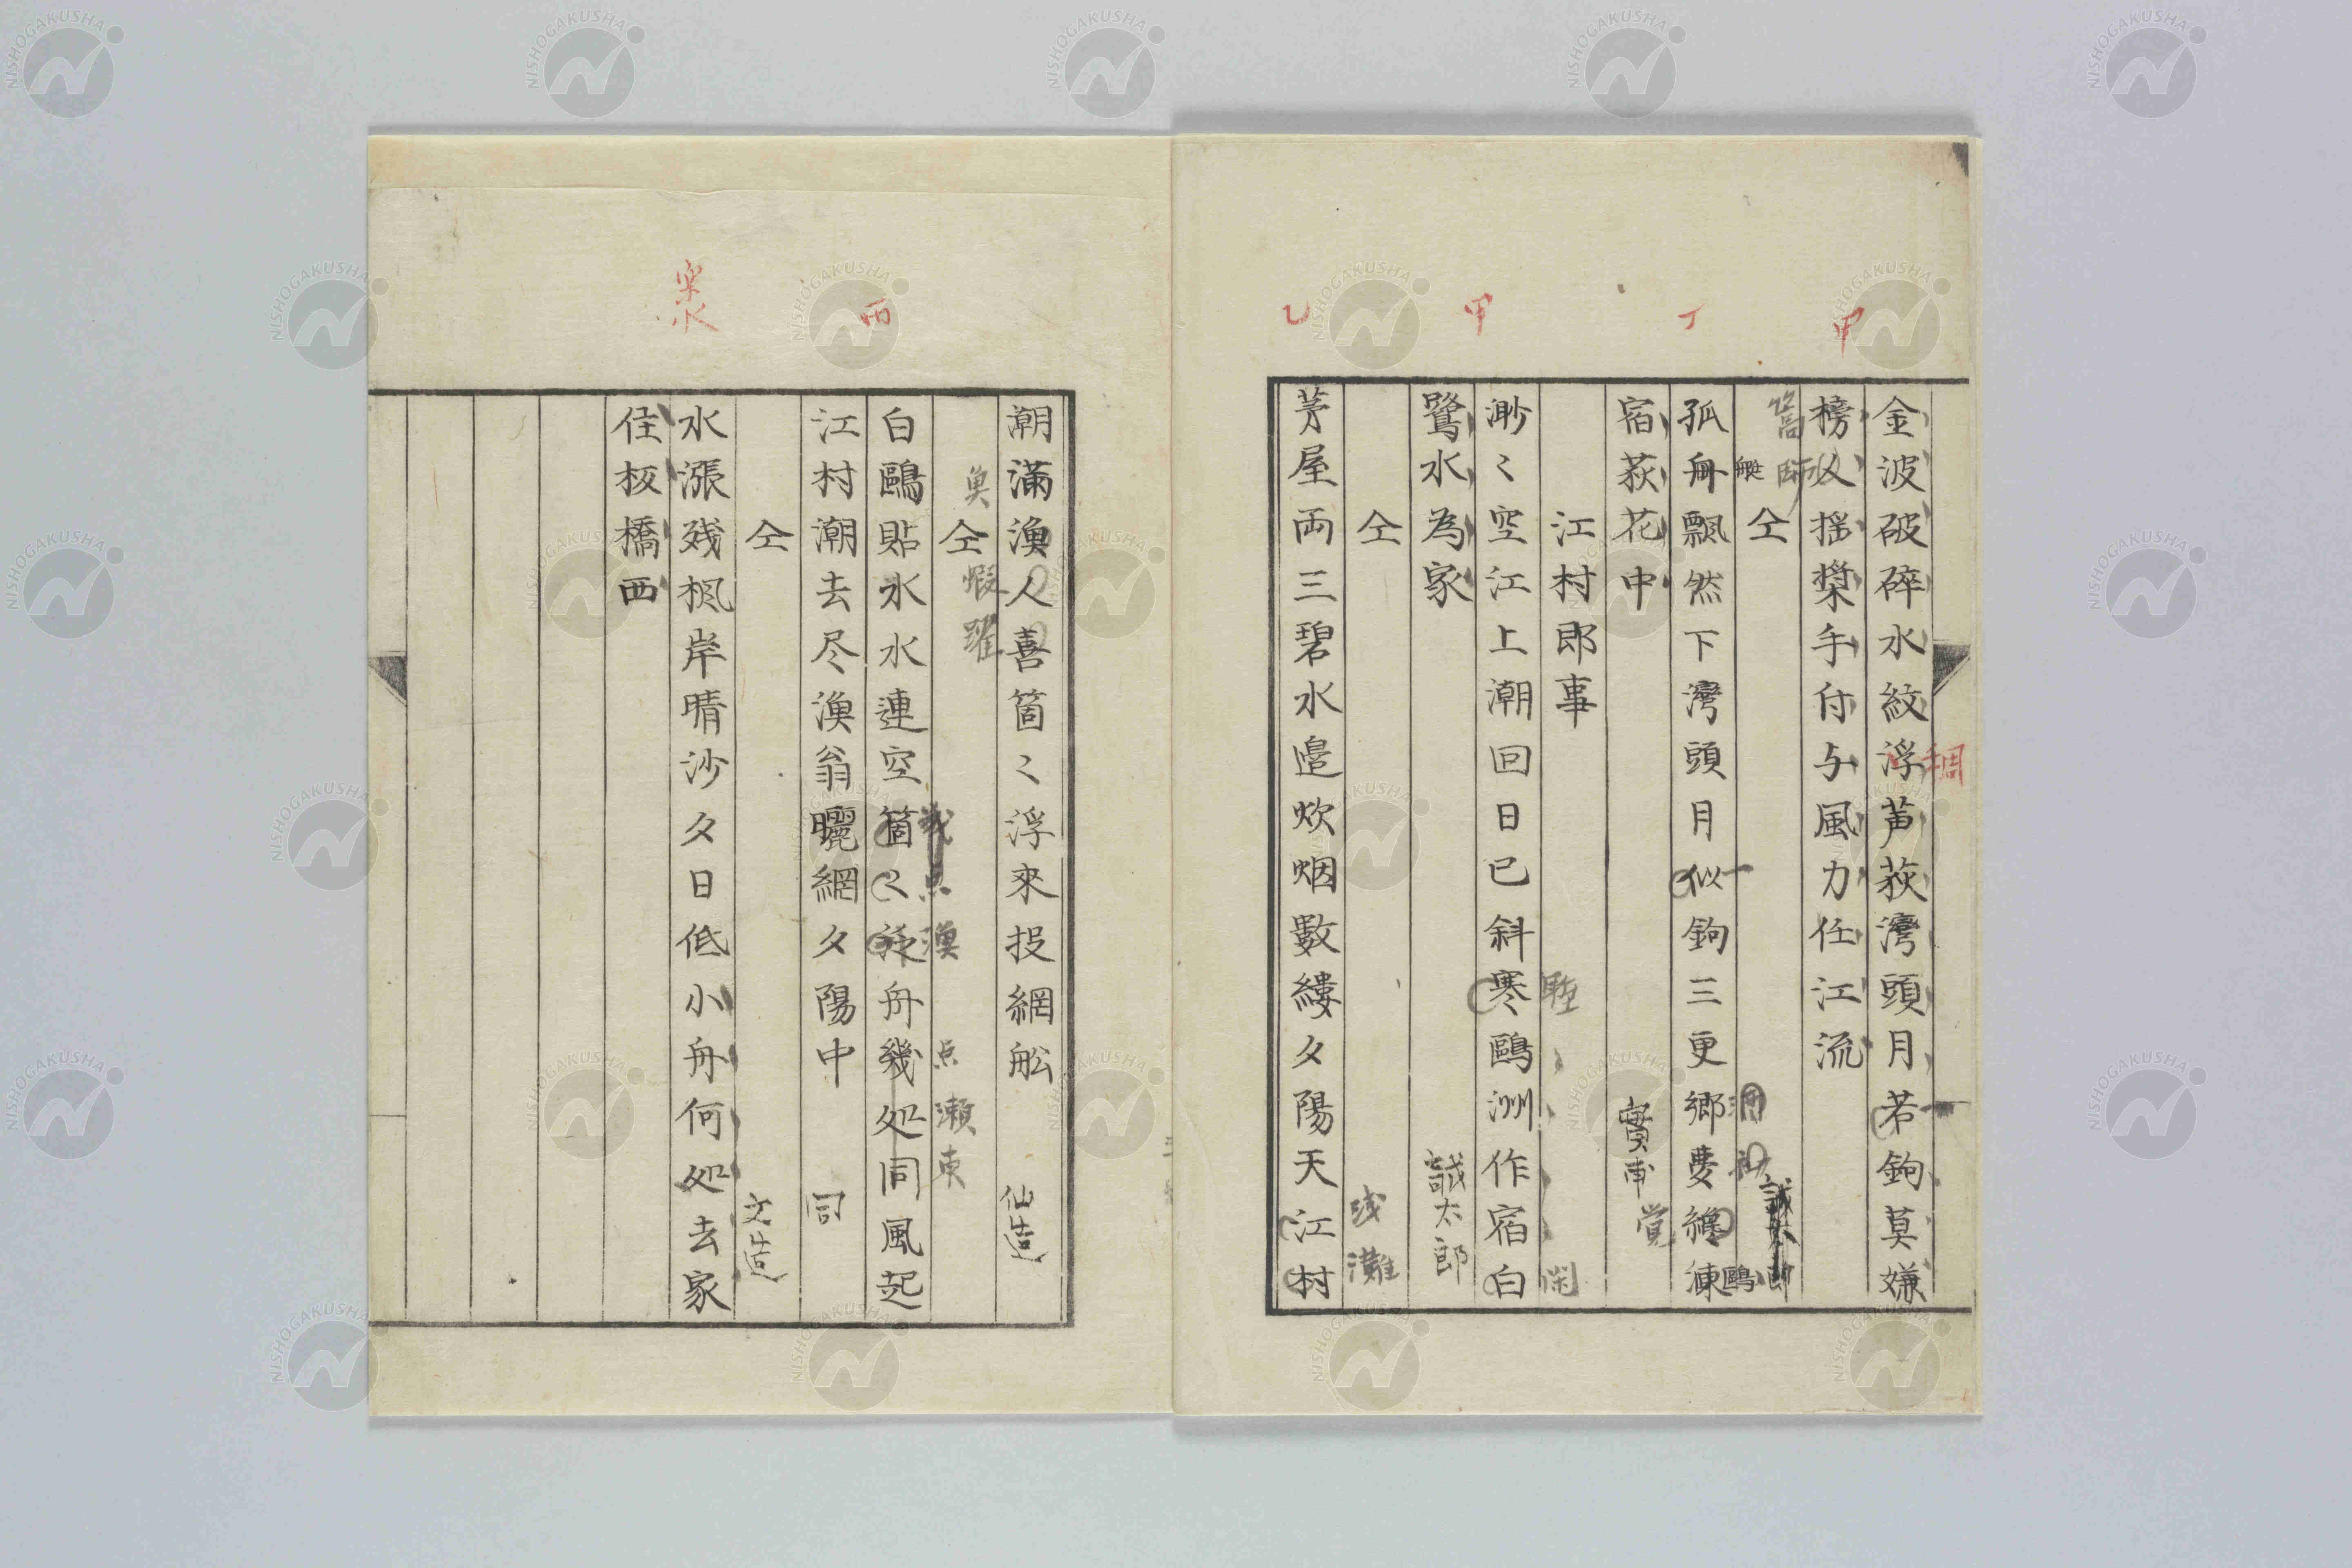 甲
丁
甲
乙
金波破碎水紋浮芦荻灣頭月若鉤莫嫌
稠
榜人揺槳手付与風力任江流
篙師
仝
誠太郎
孤舟飄然下灣頭月似鉤三更郷夢繞湅
鷗
宿荻花中
實甫
覚
江村即事
渺〻空江上潮回日已斜寒鷗洲作宿白
閑
鷺水為家
誠太郎
仝
浅灘
茅屋両三碧水邉炊烟數縷夕陽天江村
丙
潮滿漁人喜箇〻浮來投網舩
仙造
仝
魚
蝦躍
白鷗貼水水連空箇〻漁舟幾処同風起
幾点漁
点瀬東
江村潮去尽漁翁曬網夕陽中
同
仝
文造
水漲残楓岸晴沙夕日低小舟何処去家
住板橋西
NISHOGAKUSHA